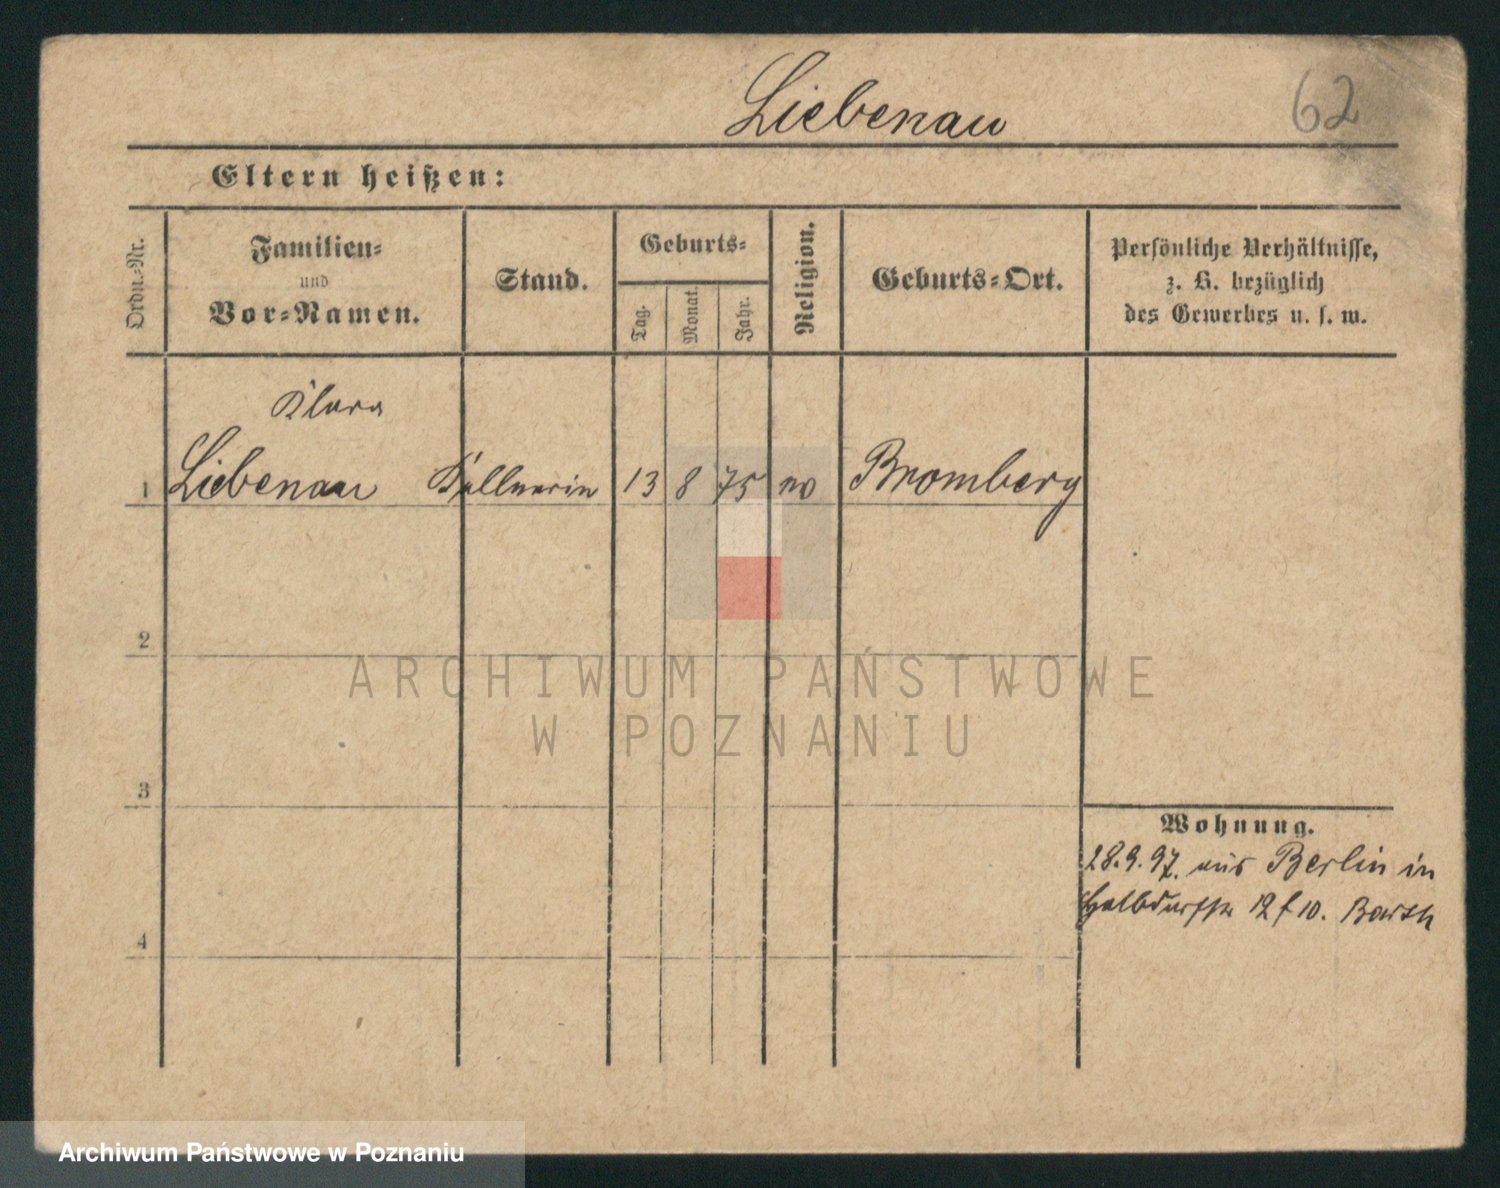 Liebenau
62
Eltern heißen:
Ordn.-Nr.
Familien-
und
Vor-Namen.
Stand.
Geburts-
Tag.
Monat.
Jahr.
Religion.
Geburts-Ort.
Persönliche Verhältnisse,
z. B. bezüglich
des Gewerbes u. s. w.
Klara
1 Liebenau Kellnerin 13 8 75 Bromberg
2
3
4
Wohnung.
28.9.97. aus Berlin in
12 10.
ARCHIWUM PAŃSTWOWE
W POZNANIU
Archiwum Państwowe w Poznaniu